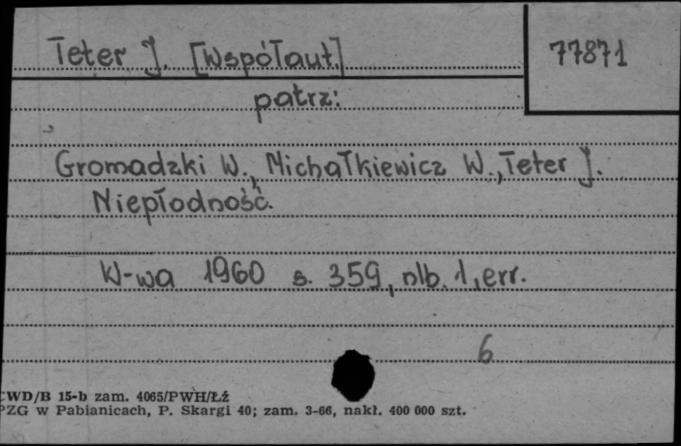 Teter J. [Współaut.]
77871
patrz:
Gromadzki W., Michałkiewicz W., Teter J.
Niepłodność.
W-wa 1960 s. 359, nlb. 1, err.
6
CWD/B 15-b zam. 4065/PWH/Łź
PZG w Pabianicach, P. Skargi 40; zam. 3-66, nakł. 400 000 szt.